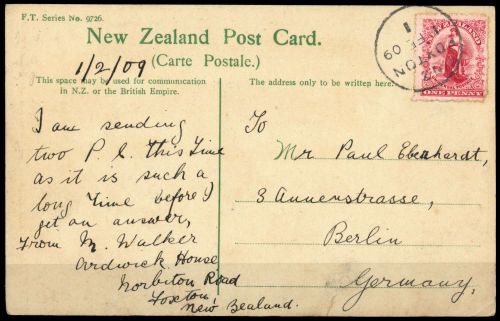 F.T. Series No. 9726.
New Zealand Post Card.
(Carte Postale.)
1/2/09
This space may be used for communication
in N.Z. or the British Empire.
The address only to be written here.
I am sending
two P.C. this time
as it is such a
long time before I
get an answer,
From M. Walker
Ardwick House
Norbiton Road
Foxton,
New Zealand.
To
Mr Paul Eberhardt,
3 Annenstrasse,
Berlin
Germany.
FOXTON
N.Z
1 FE 09
ZEALAND
ONE PENNY